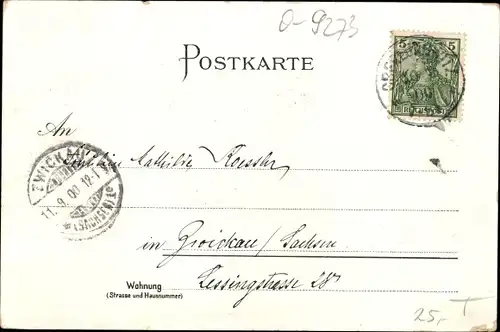 O-9273
POSTKARTE
5
An
Fräulein Mathilde Koessler
ZWICKAU
11.9.00.12-1
(SACHSEN)
in Zwickau / Sachsen
Lessingstrasse 28
Wohnung
(Strasse und Hausnummer)
25,- T